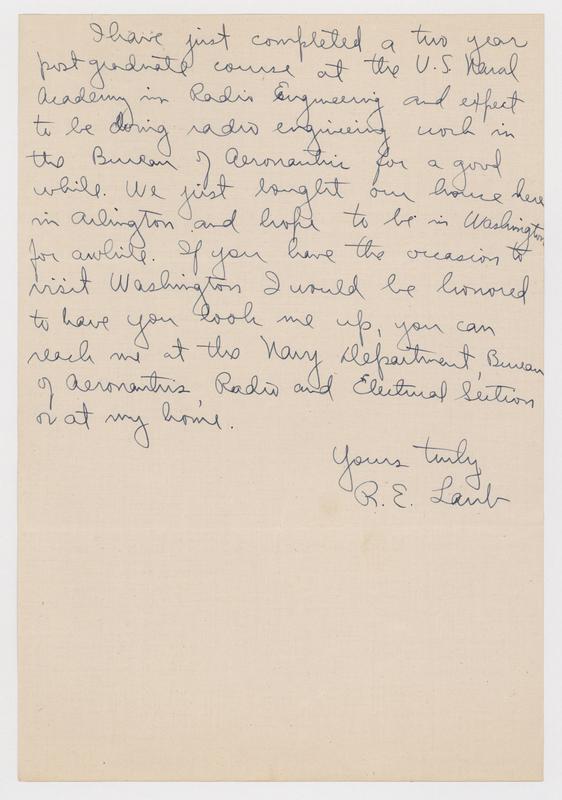 I have just completed a two year
post graduate course at the U.S. Naval
Academy in Radio Engineering and expect
to be doing radio engineering work in
the Bureau of Aeronautics for a good
while. We just bought our house here
in Arlington and hope to be in Washington
for awhile. If you have the occasion to
visit Washington I would be honored
to have you look me up, you can
reach me at the Navy Department, Bureau
of Aeronautics, Radio and Electrical Section
or at my home.
Yours truly
R. E. Laub